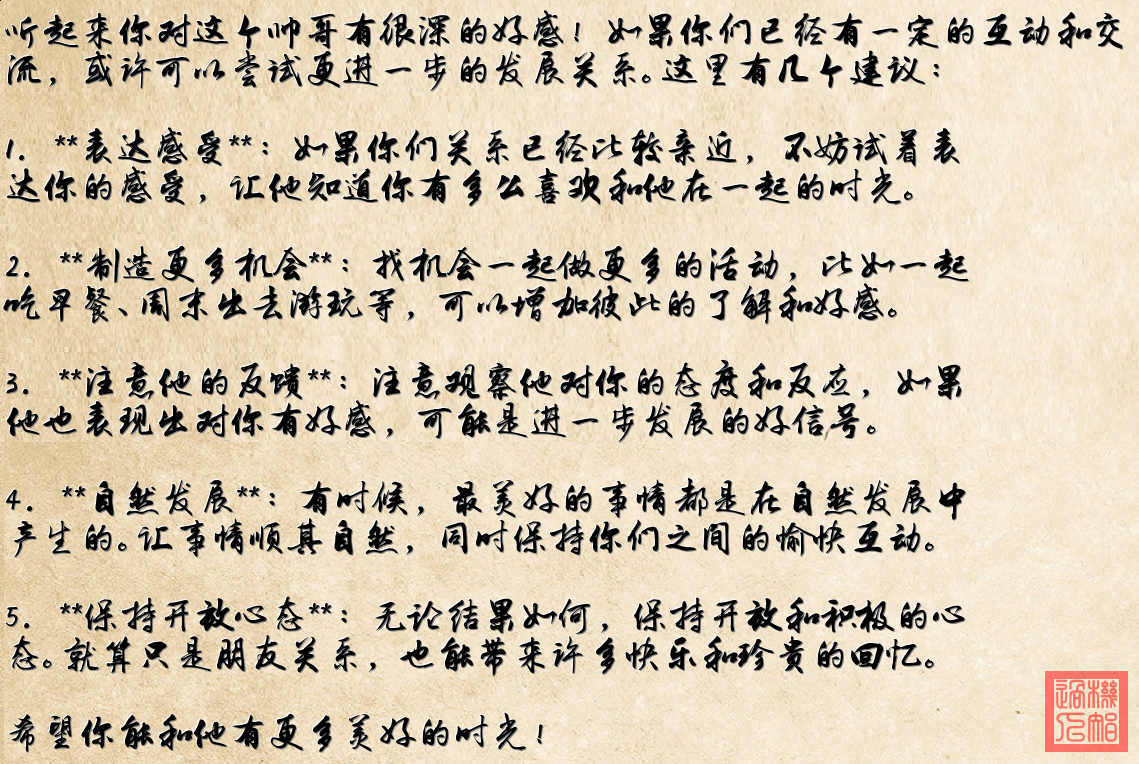 听起来你对这个帅哥有很深的好感！如果你们已经有一定的互动和交
流，或许可以尝试更进一步的发展关系。这里有几个建议：
1. **表达感受**：如果你们关系已经比较亲近，不妨试着表
达你的感受，让他知道你有多么喜欢和他在一起的时光。
2. **制造更多机会**：找机会一起做更多的活动，比如一起
吃早餐、周末出去游玩等，可以增加彼此的了解和好感。
3. **注意他的反馈**：注意观察他对你的态度和反应，如果
他也表现出对你有好感，可能是进一步发展的好信号。
4. **自然发展**：有时候，最美好的事情都是在自然发展中
产生的。让事情顺其自然，同时保持你们之间的愉快互动。
5. **保持开放心态**：无论结果如何，保持开放和积极的心
态。就算只是朋友关系，也能带来许多快乐和珍贵的回忆。
希望你能和他有更多美好的时光！